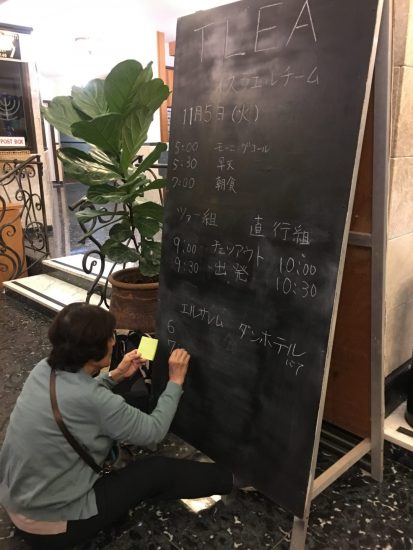 POST BOX
TLEA
イスラエルチーム
11月5日(火)
5:00 モーニングコール
5:30 早天
7:00 朝食
ツアー組 直行組
9:00 チェックアウト 10:00
9:30 出発 10:30
エルサレム ダンホテル
6
7